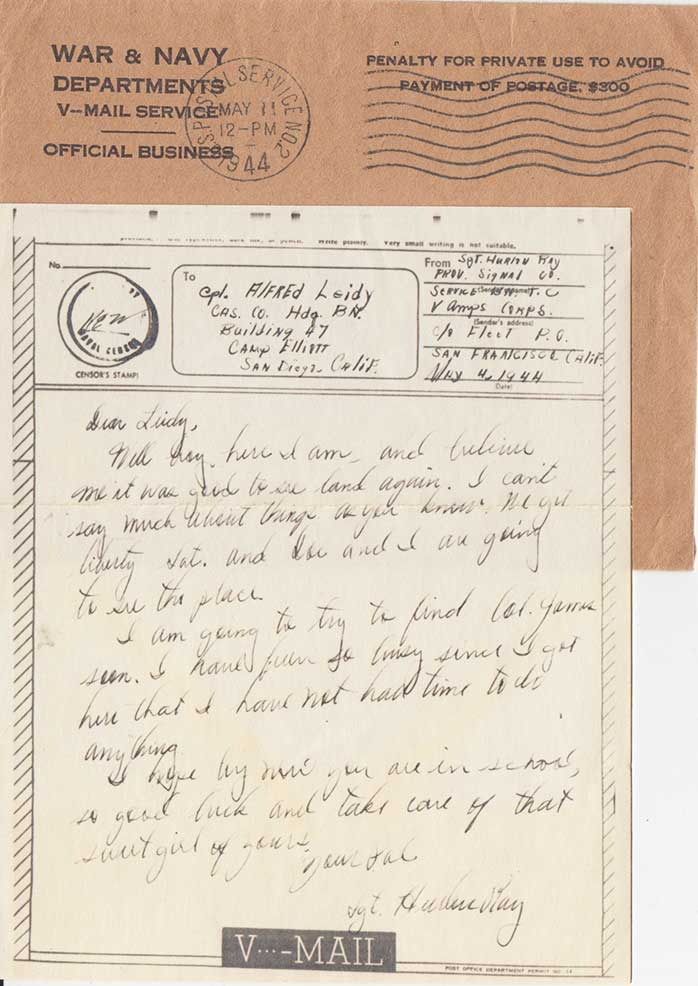 WAR & NAVY
DEPARTMENTS
V--MAIL SERVICE
OFFICIAL BUSINESS
PENALTY FOR PRIVATE USE TO AVOID
PAYMENT OF POSTAGE, $300
U.S. POSTAL SERVICE NO. 2
MAY 11
12-PM
1944
Write plainly. Very small writing is not suitable.
No.
NAVAL CENSOR
CENSOR'S STAMP
To
Cpl. Alfred Leidy
Cas. Co. Hdq. BN.
Building 47
Camp Elliott
San Diego, Calif.
From
Sgt. Hay
Prov. Signal Co.
(Sender's name)
Service BN. T.C
V Amps Corps.
(Sender's address)
c/o Fleet P.O.
San Francisco Calif.
May 4, 1944
(Date)
Dear Leidy,
Well boy, here I am, and believe
me it was good to see land again. I can't
say much about things as you know. We get
liberty Sat. and Joe and I are going
to see the place.
I am going to try to find Col. James
soon. I have been so busy since I got
here that I have not had time to do
anything.
I hope by now you are in school,
so good luck and take care of that
sweet girl of yours.
Your Pal
Sgt. Hay
V···-MAIL
POST OFFICE DEPARTMENT PERMIT NO. 14